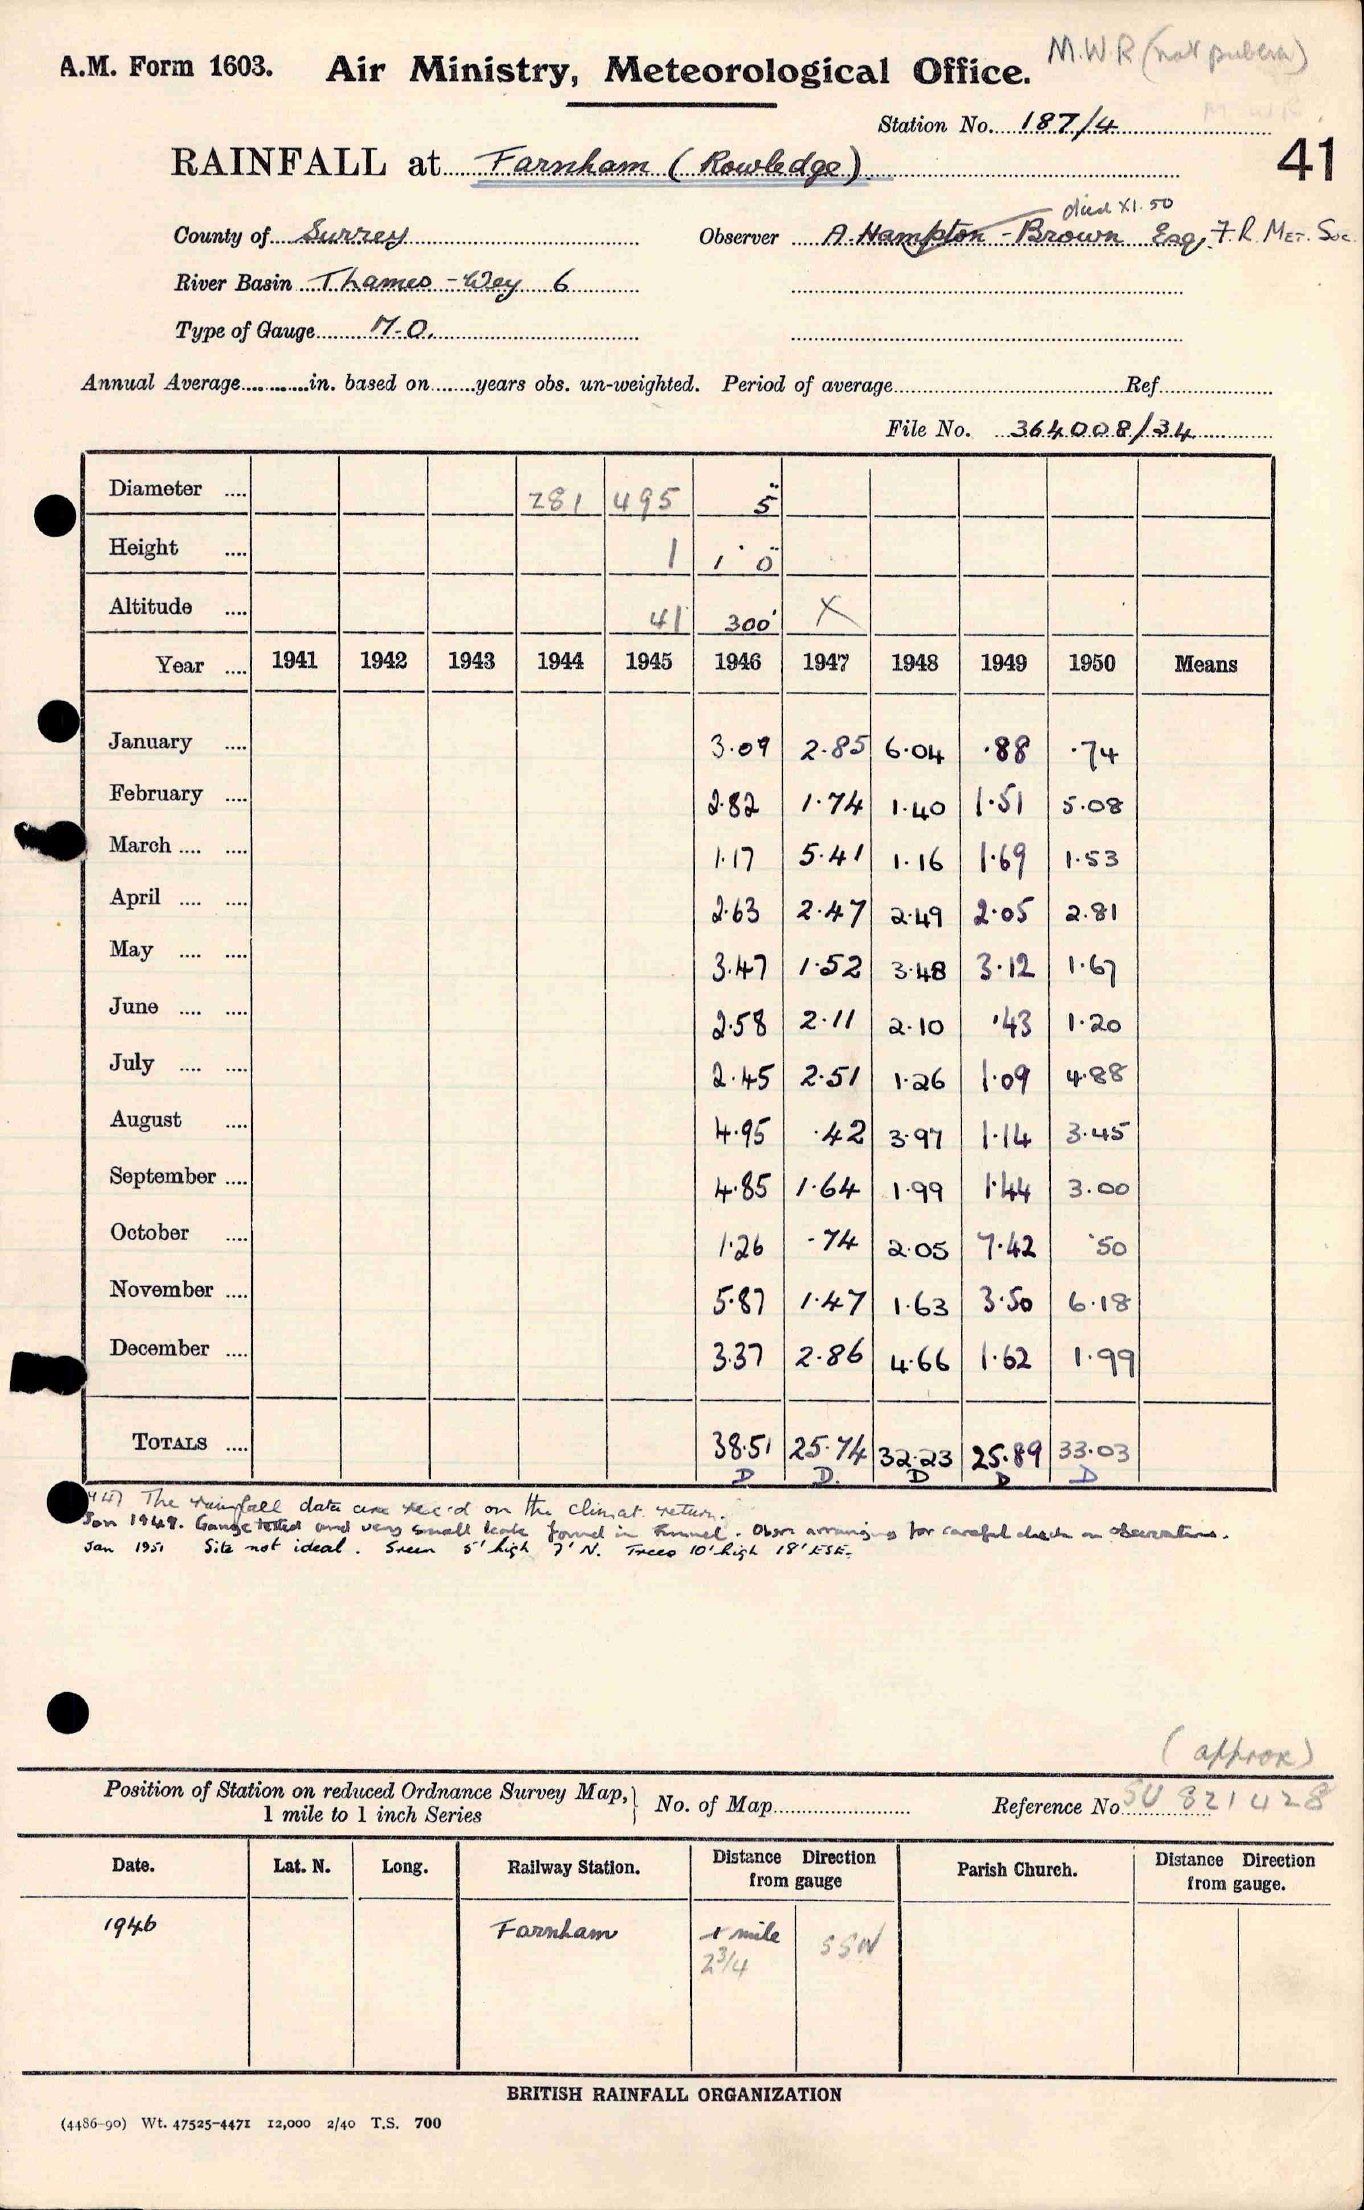 A.M. Form 1603. Air Ministry, Meteorological Office. M.W.R (not
Station No. 187/4
RAINFALL at Farnham (Rowledge) 41
died XI.50
County of Surrey Observer A. Hampton-Brown Esq, F.R.MET.Soc.
River Basin Thames-Wey 6
Type of Gauge M.O.
Annual Average in. based on years obs. un-weighted. Period of average Ref
File No. 364008/34
Diameter 281 495 5"
Height 1 1' 0"
Altitude 41 300' X
Year 1941 1942 1943 1944 1945 1946 1947 1948 1949 1950 Means
January 3.09 2.85 6.04 .88 .74
February 2.82 1.74 1.40 1.51 5.08
March 1.17 5.41 1.16 1.69 1.53
April 2.63 2.47 2.49 2.05 2.81
May 3.47 1.52 3.48 3.12 1.67
June 2.58 2.11 2.10 .43 1.20
July 2.45 2.51 1.26 1.09 4.88
August 4.95 .42 3.97 1.14 3.45
September 4.85 1.64 1.99 1.44 3.00
October 1.26 .74 2.05 7.42 .50
November 5.87 1.47 1.63 3.50 6.18
December 3.37 2.86 4.66 1.62 1.99
TOTALS 38.51 25.74 32.23 25.89 33.03
D D. D D D
The rainfall data are rec'd on the climat. return.
Jan 1949. Gauge tested and very small leak found in Funnel. Obsr arranging for careful check on observations.
Jan 1951 Site not ideal. Sreen 5' high 7' N. Trees 10' high 18' ESE.
(approx)
Position of Station on reduced Ordnance Survey Map, 1 mile to 1 inch Series } No. of Map Reference No SU 821428
Date. Lat. N. Long. Railway Station. Distance Direction from gauge Parish Church. Distance Direction from gauge.
1946 Farnham 1 mile SSW
2 3/4
BRITISH RAINFALL ORGANIZATION
(4486-90) Wt. 47525-4471 12,000 2/40 T.S. 700